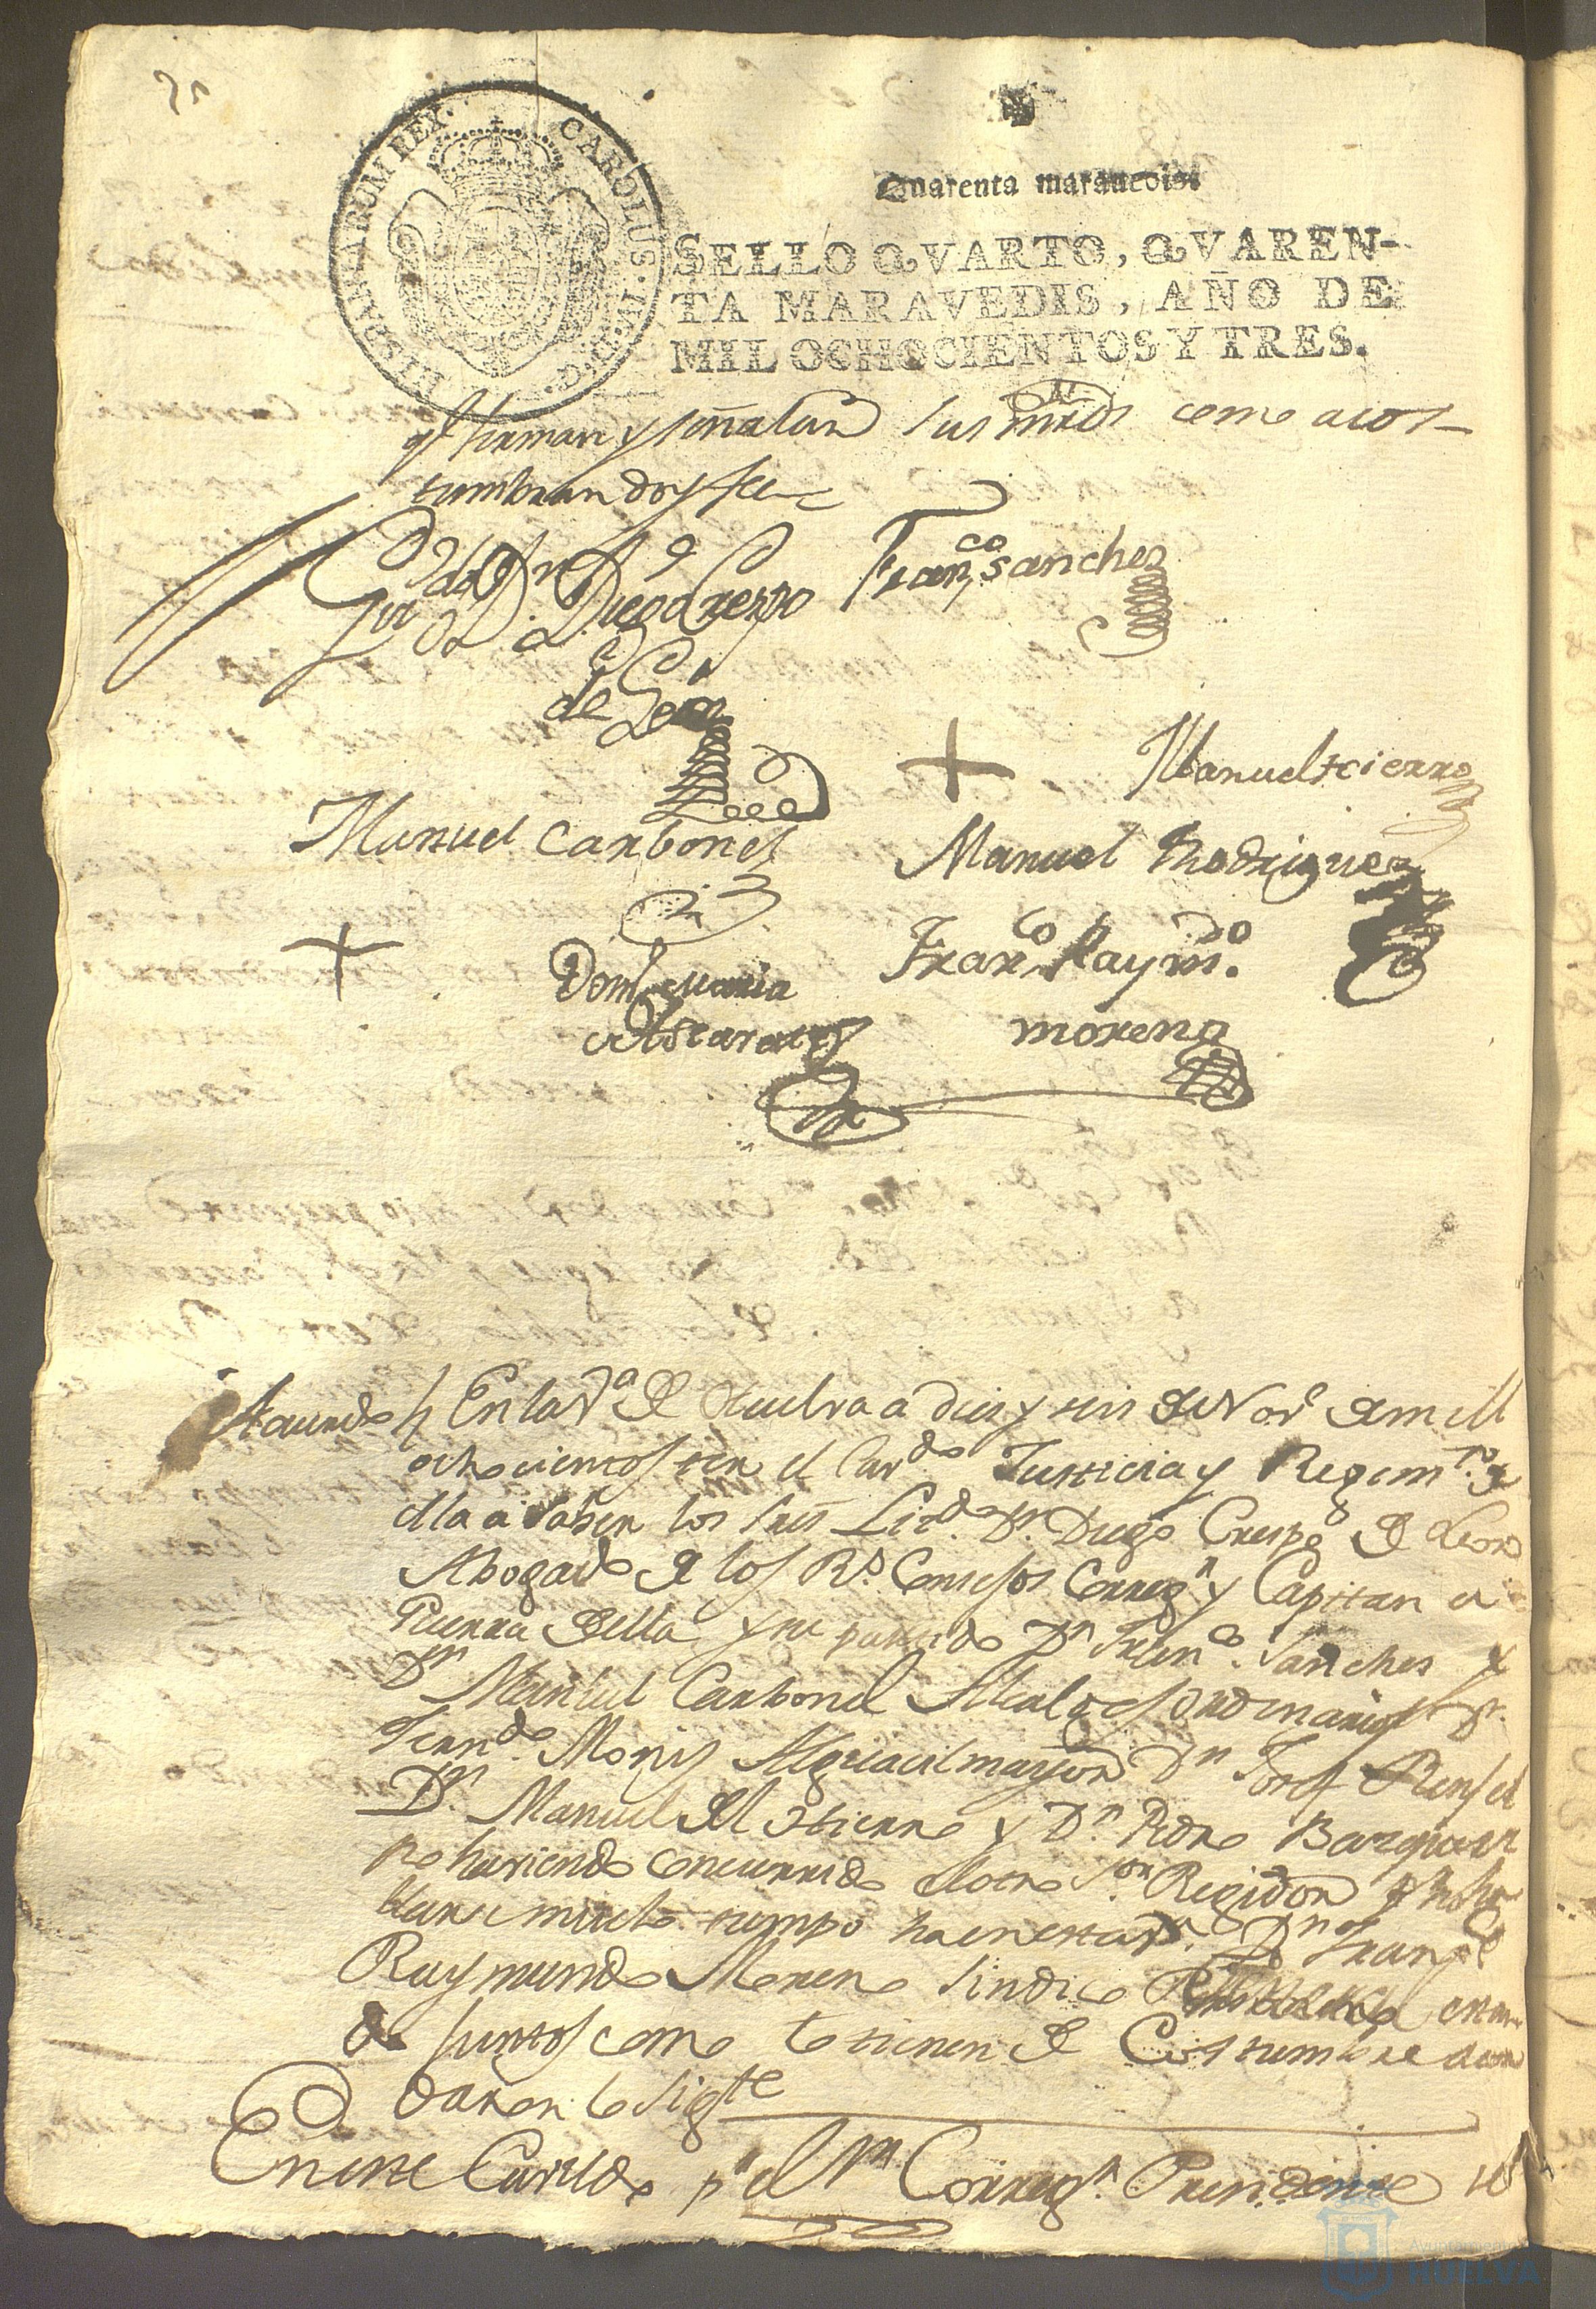 HISPANIARUM REX. CAROLUS. IV. D. G.
Quarenta maravedis.
SELLO QVARTO, QVAREN-
TA MARAVEDIS, AÑO DE
MIL OCHOCIENTOS Y TRES.
qe firman y señalan sus mrds como acos-
tumbran doy fee
Lizdo Dn Diego Crespo
de Leon
Franco sanchez
Manuel Hierro
Manuel Carbonel
Manuel Rodriguez
Domo Maria
Franco Raymdo
moreno
Acuerdo En la Va de Huelva a dies y seis de Nove de mill
ochocientos tres el Cavdo Justicia y Regimto de
ella a saber los Sres Lizdo Dn Diego Crespo de Leon
Abogado de los Rs Consejos Corregr y Capitan a
Guerra de ella y su partido Dn Franco Sanches y
Dn Manuel Carbonel Alcaldes ordinarios Dn
Ferndo Moris Alguacil mayor Dn Josef
Dn Manuel del Hierro y Dn Pedro
no haviendo concurrido el otro Sor Regidor
mucho tiempo Dn Franco
Raymundo Moreno Sindico estan-
do juntos como lo tienen de Costumbre acor-
daron lo sigte
En este Cavildo pr el Sr Corregr Presidente se
Ayuntamiento de
HUELVA